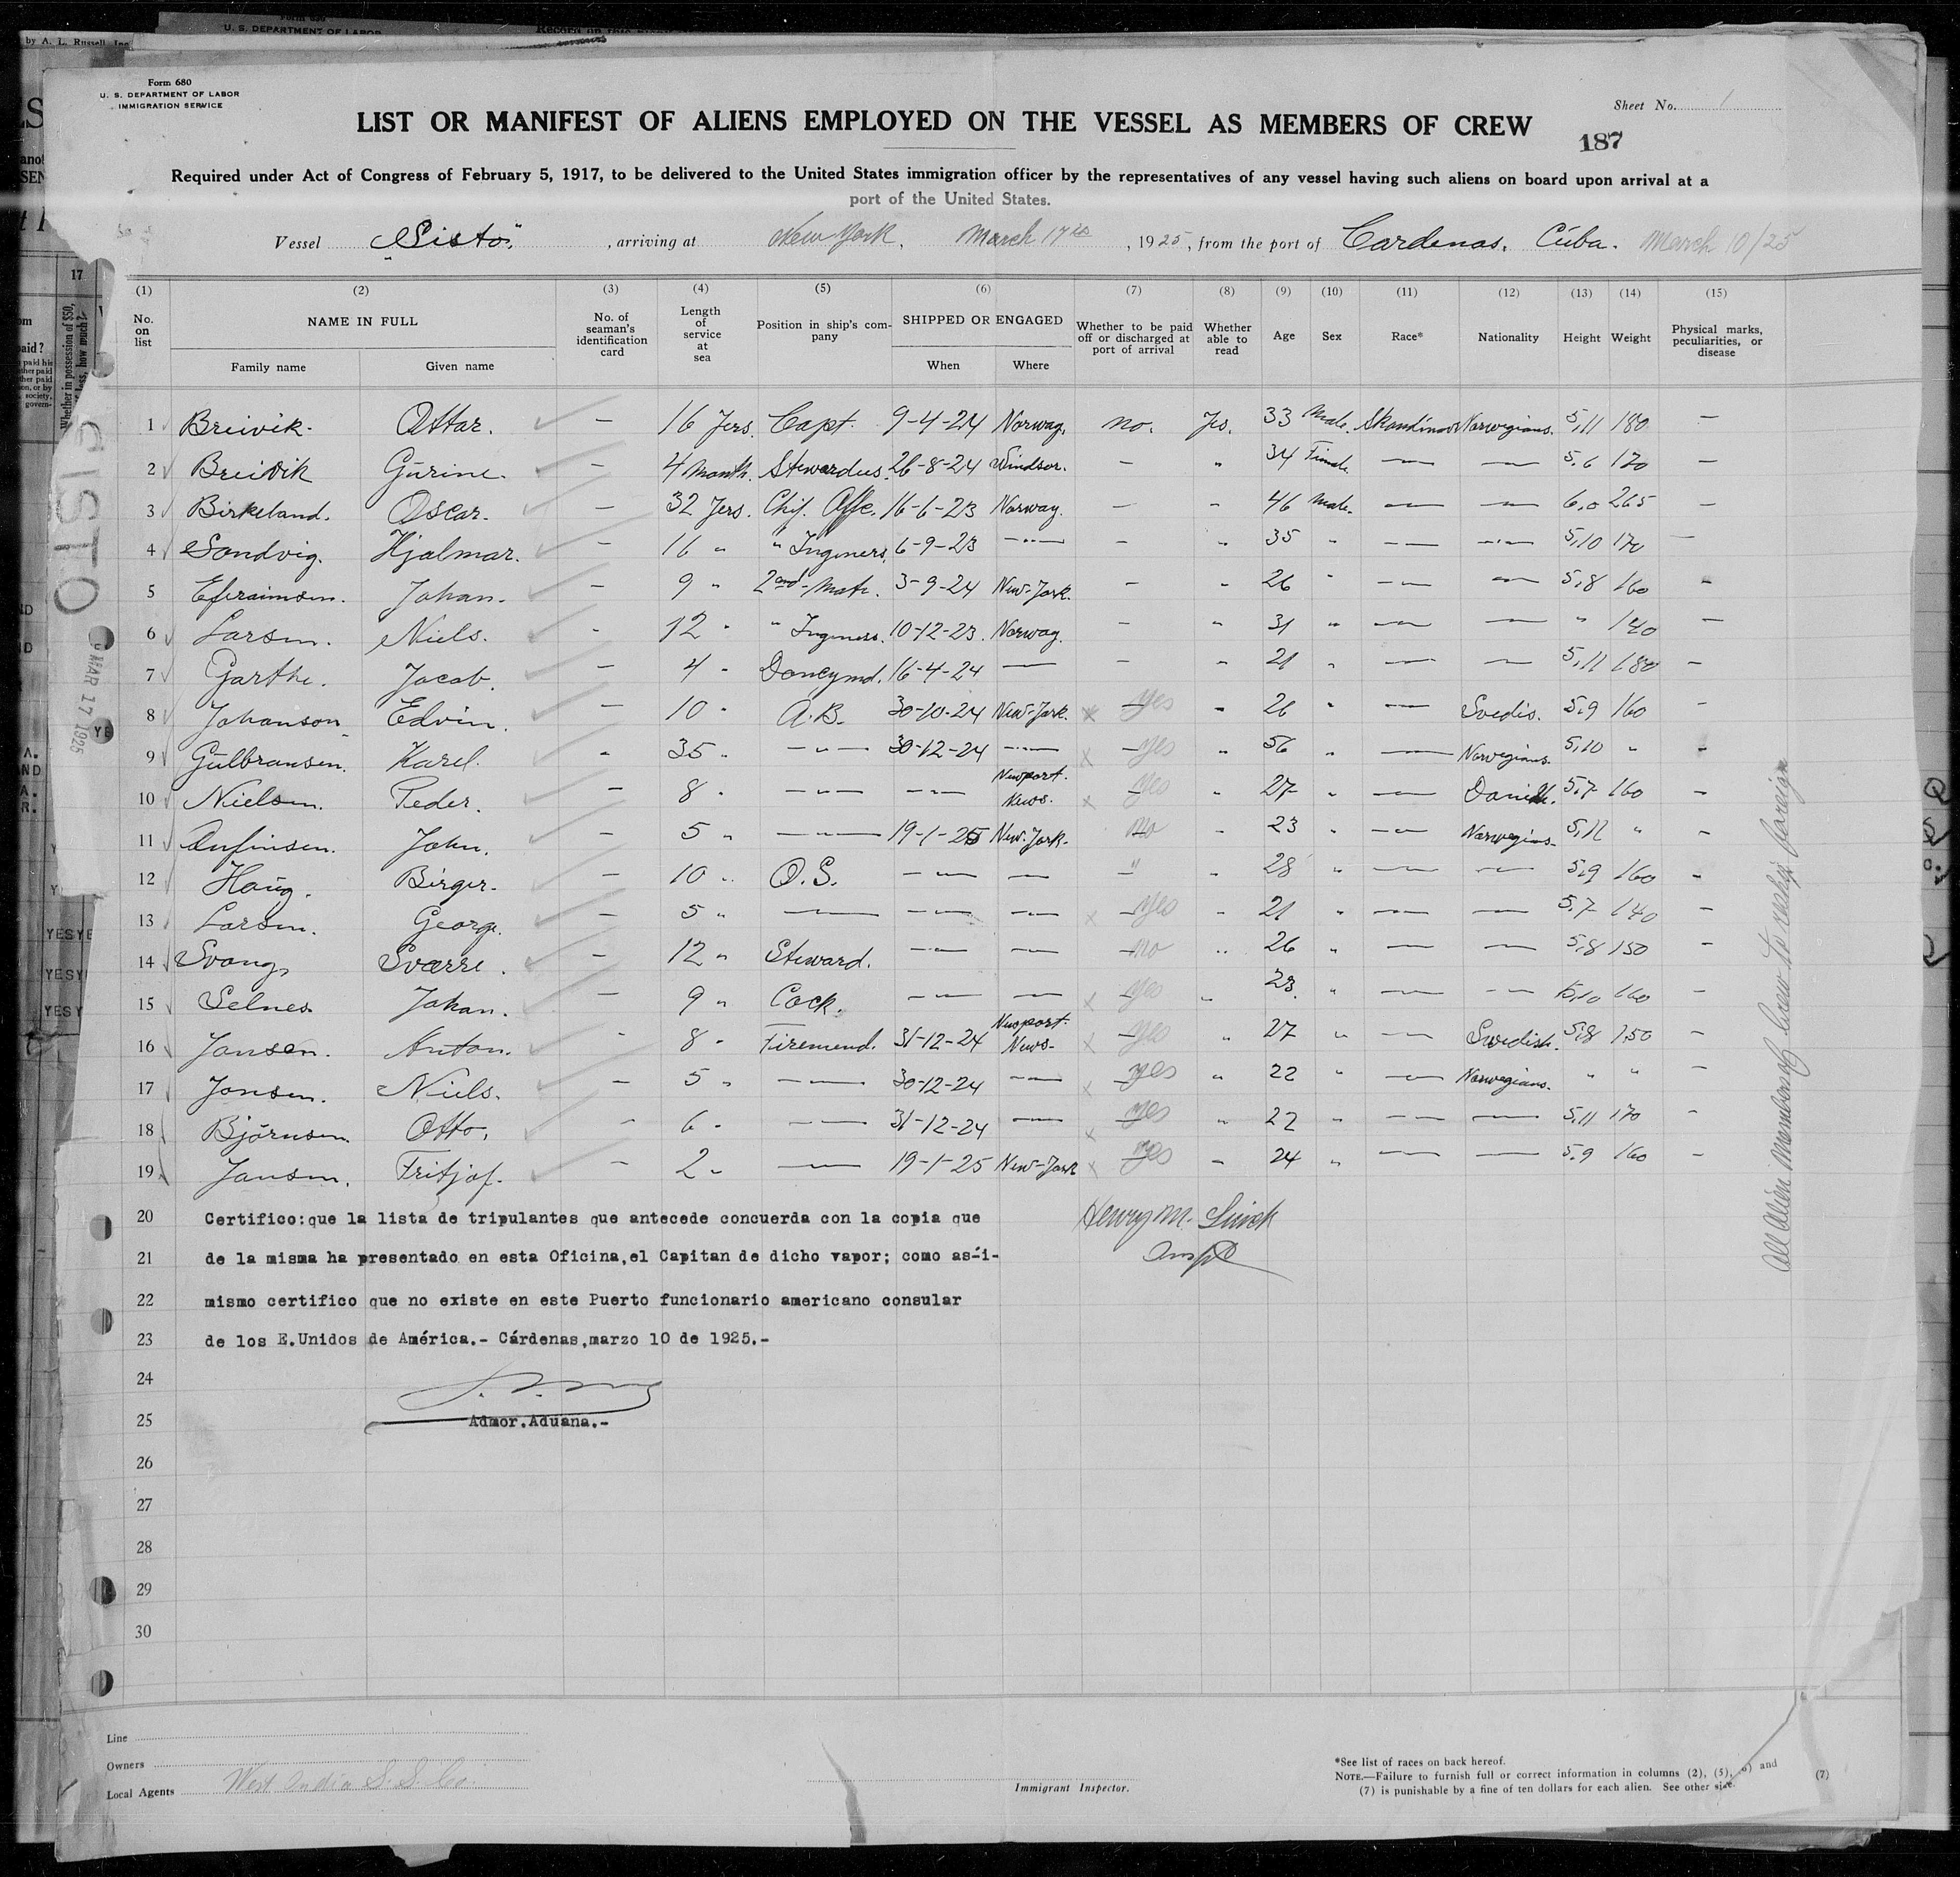 Form 680
U. S. DEPARTMENT OF LABOR
IMMIGRATION SERVICE
Sheet No. 1
LIST OR MANIFEST OF ALIENS EMPLOYED ON THE VESSEL AS MEMBERS OF CREW
187
Required under Act of Congress of February 5, 1917, to be delivered to the United States immigration officer by the representatives of any vessel having such aliens on board upon arrival at a
port of the United States.
Vessel "Sisto", arriving at New York, March 17th, 1925, from the port of Cardenas, Cuba. March 10/25
(1) (2) (3) (4) (5) (6) (7) (8) (9) (10) (11) (12) (13) (14) (15)
No. on list NAME IN FULL Family name Given name No. of seaman's identification card Length of service at sea Position in ship's company SHIPPED OR ENGAGED When Where Whether to be paid off or discharged at port of arrival Whether able to read Age Sex Race* Nationality Height Weight Physical marks, peculiarities, or disease
1 Breivik. Ottar. — 16 Jers. Capt. 9-4-24 Norway. no. Jes. 33 Male. Skandinav Norwegians. 5,11 180 —
2 Breivik Gurine. — 4 Month. Stewardes. 26-8-24 Windsor. — " 34 Fimale — — 5.6 170 —
3 Birkeland. Oscar. — 32 Jers. Chif. Offc. 16-6-23 Norway. — " 46 Male. — — 6,0 265 —
4 Sandvig. Hjalmar. — 16 " " Ingeners. 6-9-23 —"— — " 35 " — — 5,10 170 —
5 Eferaimsen. Johan. — 9 " 2nd Mate. 3-9-24 New-Jork. — " 26 " — — 5,8 160 —
6 Larsen. Niels. - 12 " " Ingeners. 10-12-23. Norway. — " 31 " — — " 140 —
7 Garthe. Jacob. — 4 " Donkymd. 16-4-24 — — " 21 " — — 5,11 180 —
8 Johanson Edvin. — 10 " A.B. 30-10-24 New-Jork. x yes " 26 " — Svedis. 5,9 160 -
9 Gulbransen. Karel. - 35 " —"— 30-12-24 —"— x yes " 56 " — Norwegians. 5,10 " -
10 Nielsen. Peder. — 8 " —"— —"— Newport. News. x yes " 27 " — Danish. 5,7 160 —
11 Anfinsen. John. — 5 " —"— 19-1-25 New-Jork. no " 23 " — Norwegians. 5,11 " —
12 Haug. Birger. — 10 " O.S. —"— — " " 28 " — — 5,9 160 -
13 Larsen. George. — 5 " — —"— — x yes " 21 " — — 5,7 140 —
14 Svang, Sværre. — 12 " Steward. —"— — no " 26 " — — 5,8 150 —
15 Selnes. Johan. — 9 " Cock. —"— — x yes " 23. " — — 5,10 160 —
16 Jansen. Anton. - 8 " Firemend. 31-12-24 Newport. News. x yes " 27 " — Swedish. 5,8 150 —
17 Jonsen. Niels. — 5 " — 30-12-24 —"— x yes " 22 " — Norwegians. " " —
18 Bjørnsen. Otto. - 6 " — 31-12-24 — x yes " 22 " — — 5,11 170 —
19 Jansen. Fritjof. — 2 " — 19-1-25 New-Jork x yes " 24 " — — 5,9 160 —
20 Certifico:que la lista de tripulantes que antecede concuerda con la copia que
21 de la misma ha presentado en esta Oficina,el Capitan de dicho vapor; como as-i-
22 mismo certifico que no existe en este Puerto funcionario americano consular
23 de los E.Unidos de América.- Cárdenas,marzo 10 de 1925.-
24
25 Admor.Aduana.-
26
27
28
29
30
Henry M.
Insp
All Alien Members of Crew to reship foreign
SISTO
MAR 17 1925
Line
Owners
Local Agents West India S.S. Co.
Immigrant Inspector.
*See list of races on back hereof.
NOTE.—Failure to furnish full or correct information in columns (2), (5), (6) and
(7) is punishable by a fine of ten dollars for each alien. See other side.
(7)